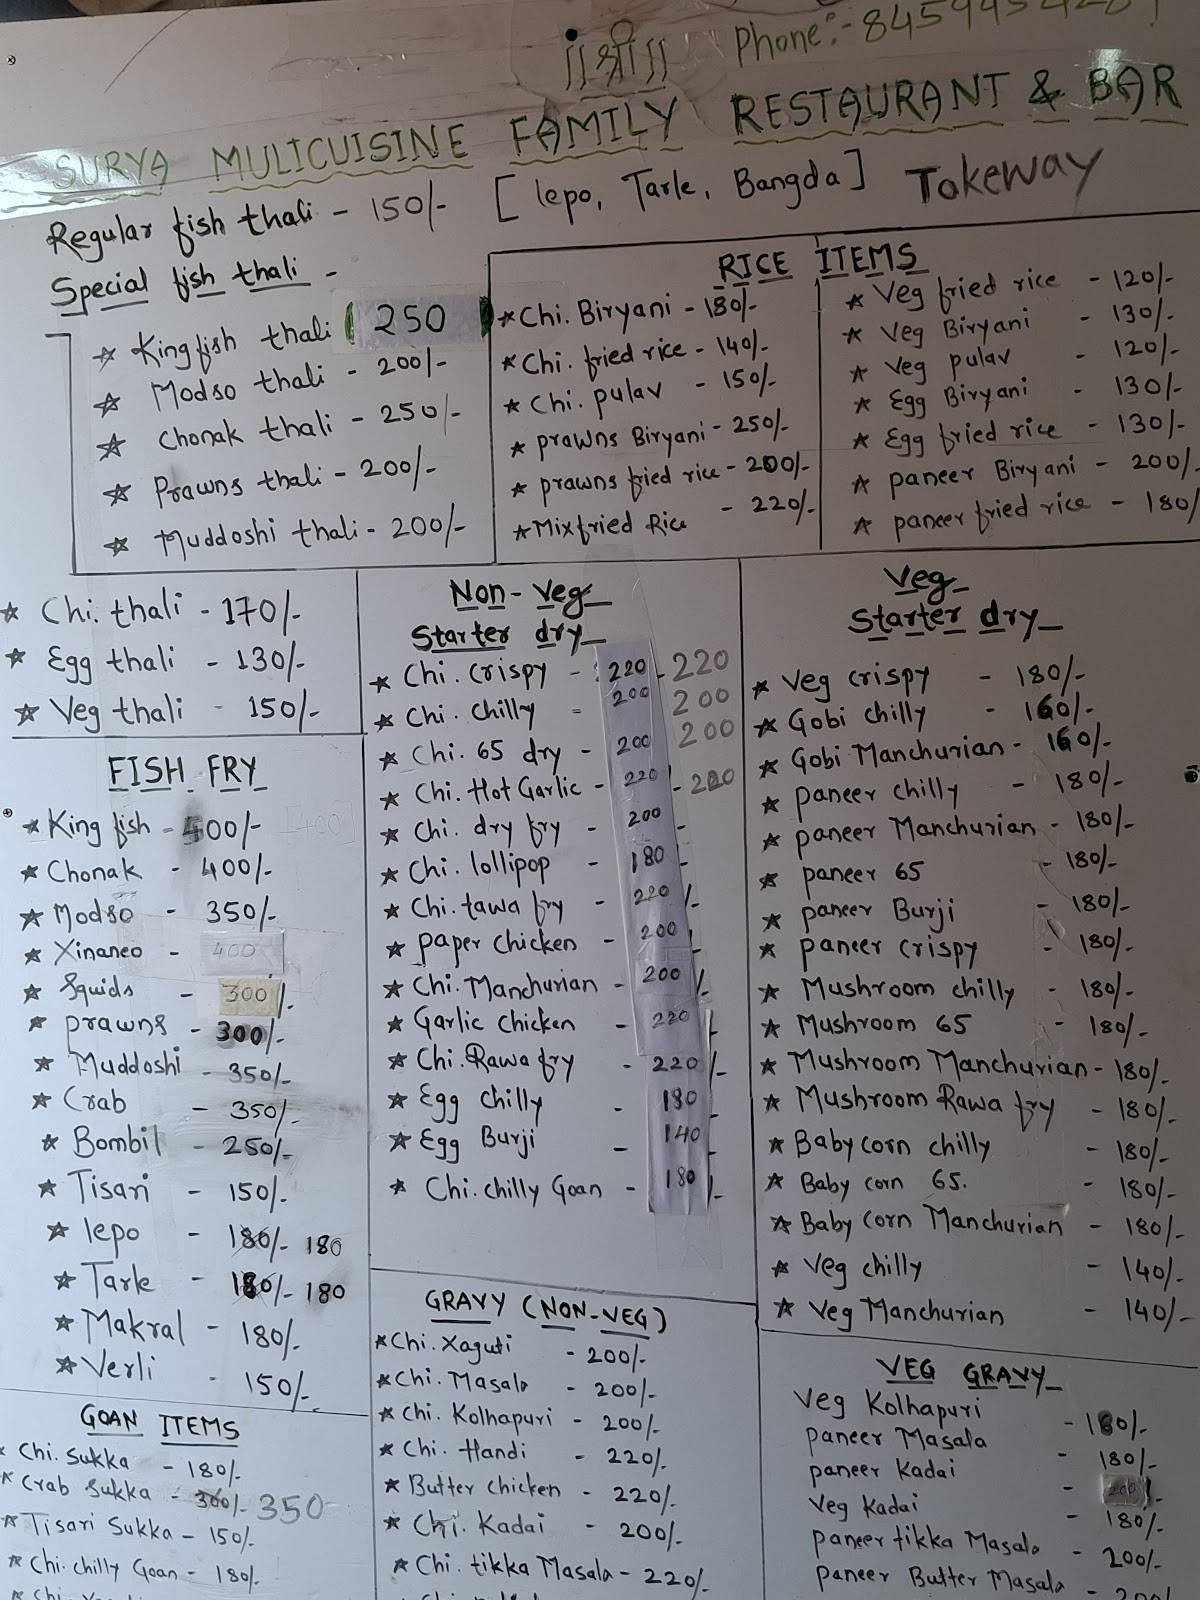 ॥श्री॥
Phone:-
SURYA MULICUISINE FAMILY RESTAURANT & BAR
Regular fish thali - 150/- [lepo, Tarle, Bangda] Takeway
Special fish thali -
★ King fish thali 250
★ Modso thali - 200/-
★ Chonak thali - 250/-
★ Prawns thali - 200/-
★ Muddoshi thali - 200/-
RICE ITEMS
★ Chi. Biryani - 180/-
★ Chi. fried rice - 140/-
★ Chi. pulav - 150/-
★ prawns Biryani - 250/-
★ prawns fried rice - 200/-
★ Mix fried Rice - 220/-
★ Veg fried rice - 120/-
★ Veg Biryani - 130/-
★ Veg pulav - 120/-
★ Egg Biryani - 130/-
★ Egg fried rice - 130/-
★ paneer Biryani - 200/-
★ paneer fried rice - 180/
★ Chi. thali - 170/-
★ Egg thali - 130/-
★ Veg thali - 150/-
FISH FRY
★ King fish - 400/- 400
★ Chonak - 400/-
★ Modso - 350/-
★ Xinaneo - 400
★ Squids - 300/-
★ prawns - 300/-
★ Muddoshi - 350/-
★ Crab - 350/-
★ Bombil - 250/-
★ Tisari - 150/-
★ lepo - 180/- 180
★ Tarle - 180/- 180
★ Makral - 180/-
★ Verli - 150/-
GOAN ITEMS
★ Chi. Sukka - 180/-
★ Crab Sukka - 300/- 350
★ Tisari Sukka - 150/-
★ Chi. chilly Goan - 180/-
Non-Veg
Starter dry
★ Chi. Crispy - 220 - 220
★ Chi. chilly - 200 200
★ Chi. 65 dry - 200 200
★ Chi. Hot Garlic - 220 - 220
★ Chi. dry fry - 200
★ Chi. lollipop - 180 -
★ Chi. tawa fry - 220 /-
★ paper chicken - 200
★ Chi. Manchurian - 200 /-
★ Garlic chicken - 220
★ Chi. Rawa fry - 220 /-
★ Egg chilly - 180
★ Egg Burji - 140
★ Chi. chilly Goan - 180 /-
GRAVY (NON-VEG)
★ Chi. Xaguti - 200/-
★ Chi. Masala - 200/-
★ Chi. Kolhapuri - 200/-
★ Chi. Handi - 220/-
★ Butter chicken - 220/-
★ Chi. Kadai - 200/-
★ Chi. tikka Masala - 220/-
Veg
Starter dry
★ Veg crispy - 180/-
★ Gobi chilly - 160/-
★ Gobi Manchurian - 160/-
★ paneer chilly - 180/-
★ paneer Manchurian - 180/-
★ paneer 65 - 180/-
★ paneer Burji - 180/-
★ paneer crispy - 180/-
★ Mushroom chilly - 180/-
★ Mushroom 65 - 180/-
★ Mushroom Manchurian - 180/-
★ Mushroom Rawa fry - 180/-
★ Baby corn chilly - 180/-
★ Baby corn 65. - 180/-
★ Baby corn Manchurian - 180/-
★ Veg chilly - 140/-
★ Veg Manchurian - 140/-
VEG GRAVY
Veg Kolhapuri - 160/-
paneer Masala - 180/-
paneer Kadai - 200/-
Veg Kadai - 180/-
paneer tikka Masala - 200/-
paneer Butter Masala - 200/-